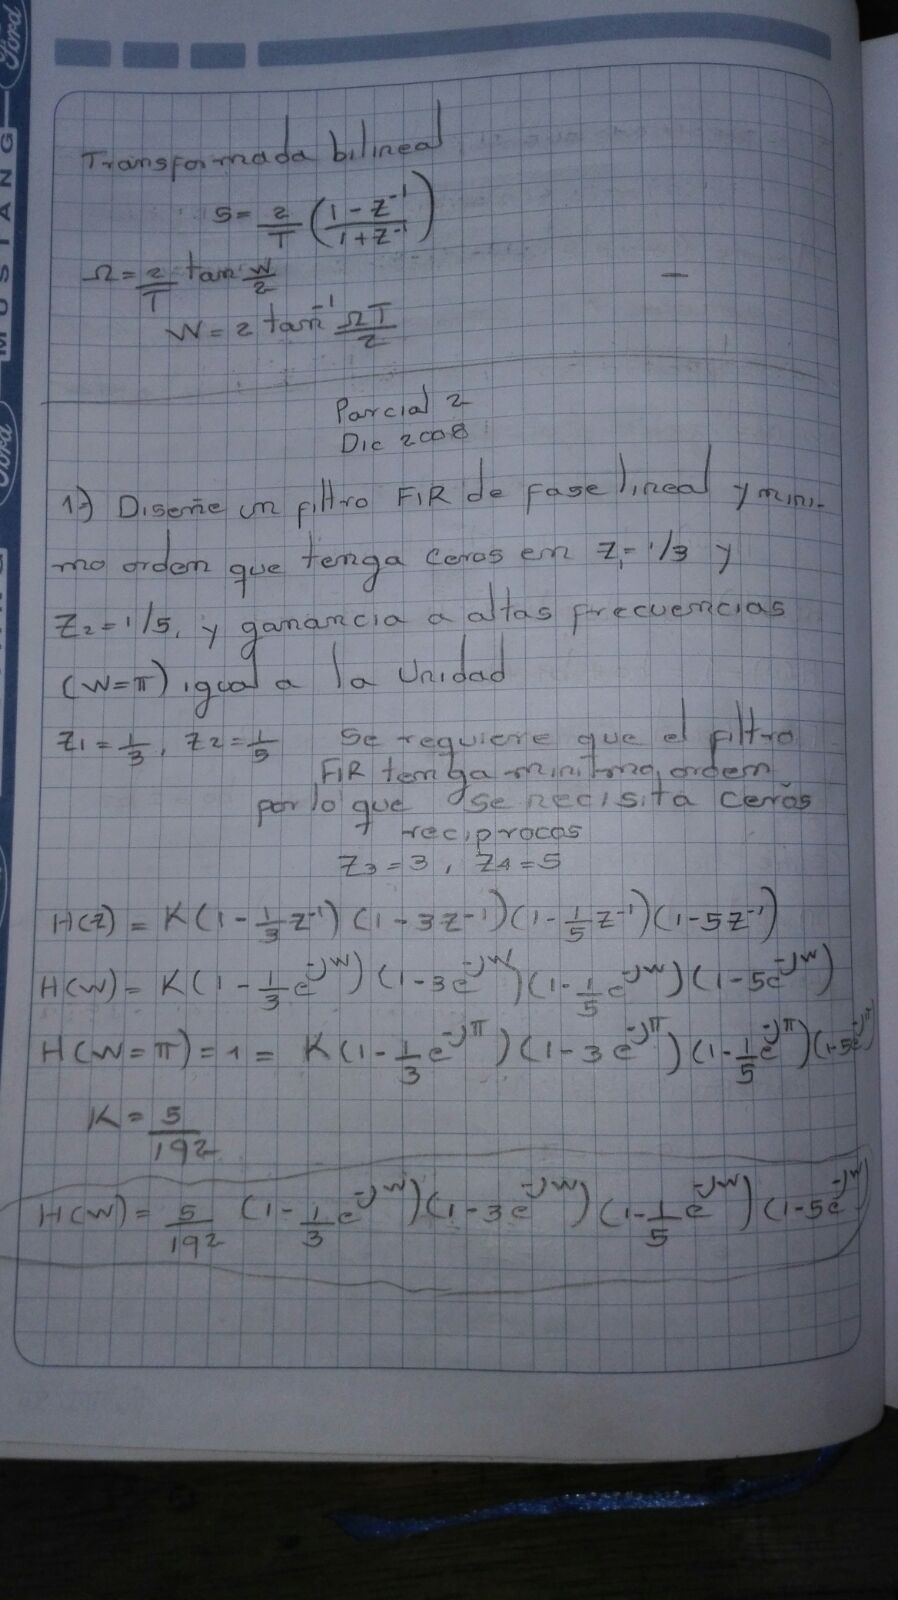 Transformada bilineal
S = 2/T ( (1 - z⁻¹) / (1 + z⁻¹) )
Ω = 2/T tan w/2
W = 2 tan⁻¹ ΩT/2
Parcial 2
Dic 2008
1.) Diseñe un filtro FIR de fase lineal y mini-
mo orden que tenga ceros en z₁ = 1/3 y
z₂ = 1/5, y ganancia a altas frecuencias
(W=π) igual a la Unidad
z₁ = 1/3, z₂ = 1/5 Se requiere que el filtro
FIR tenga minimo orden
por lo que se necisita ceros
reciprocos
z₃ = 3, z₄ = 5
H(z) = K(1 - 1/3 z⁻¹)(1 - 3z⁻¹)(1 - 1/5 z⁻¹)(1 - 5z⁻¹)
H(W) = K(1 - 1/3 e^-jW)(1 - 3e^-jW)(1 - 1/5 e^-jW)(1 - 5e^-jW)
H(W = π) = 1 = K(1 - 1/3 e^-jπ)(1 - 3e^-jπ)(1 - 1/5 e^-jπ)(1 - 5e^-jπ)
K = 5/192
H(W) = 5/192 (1 - 1/3 e^-jW)(1 - 3e^-jW)(1 - 1/5 e^-jW)(1 - 5e^-jW)
Ford
MUSTANG
Ford